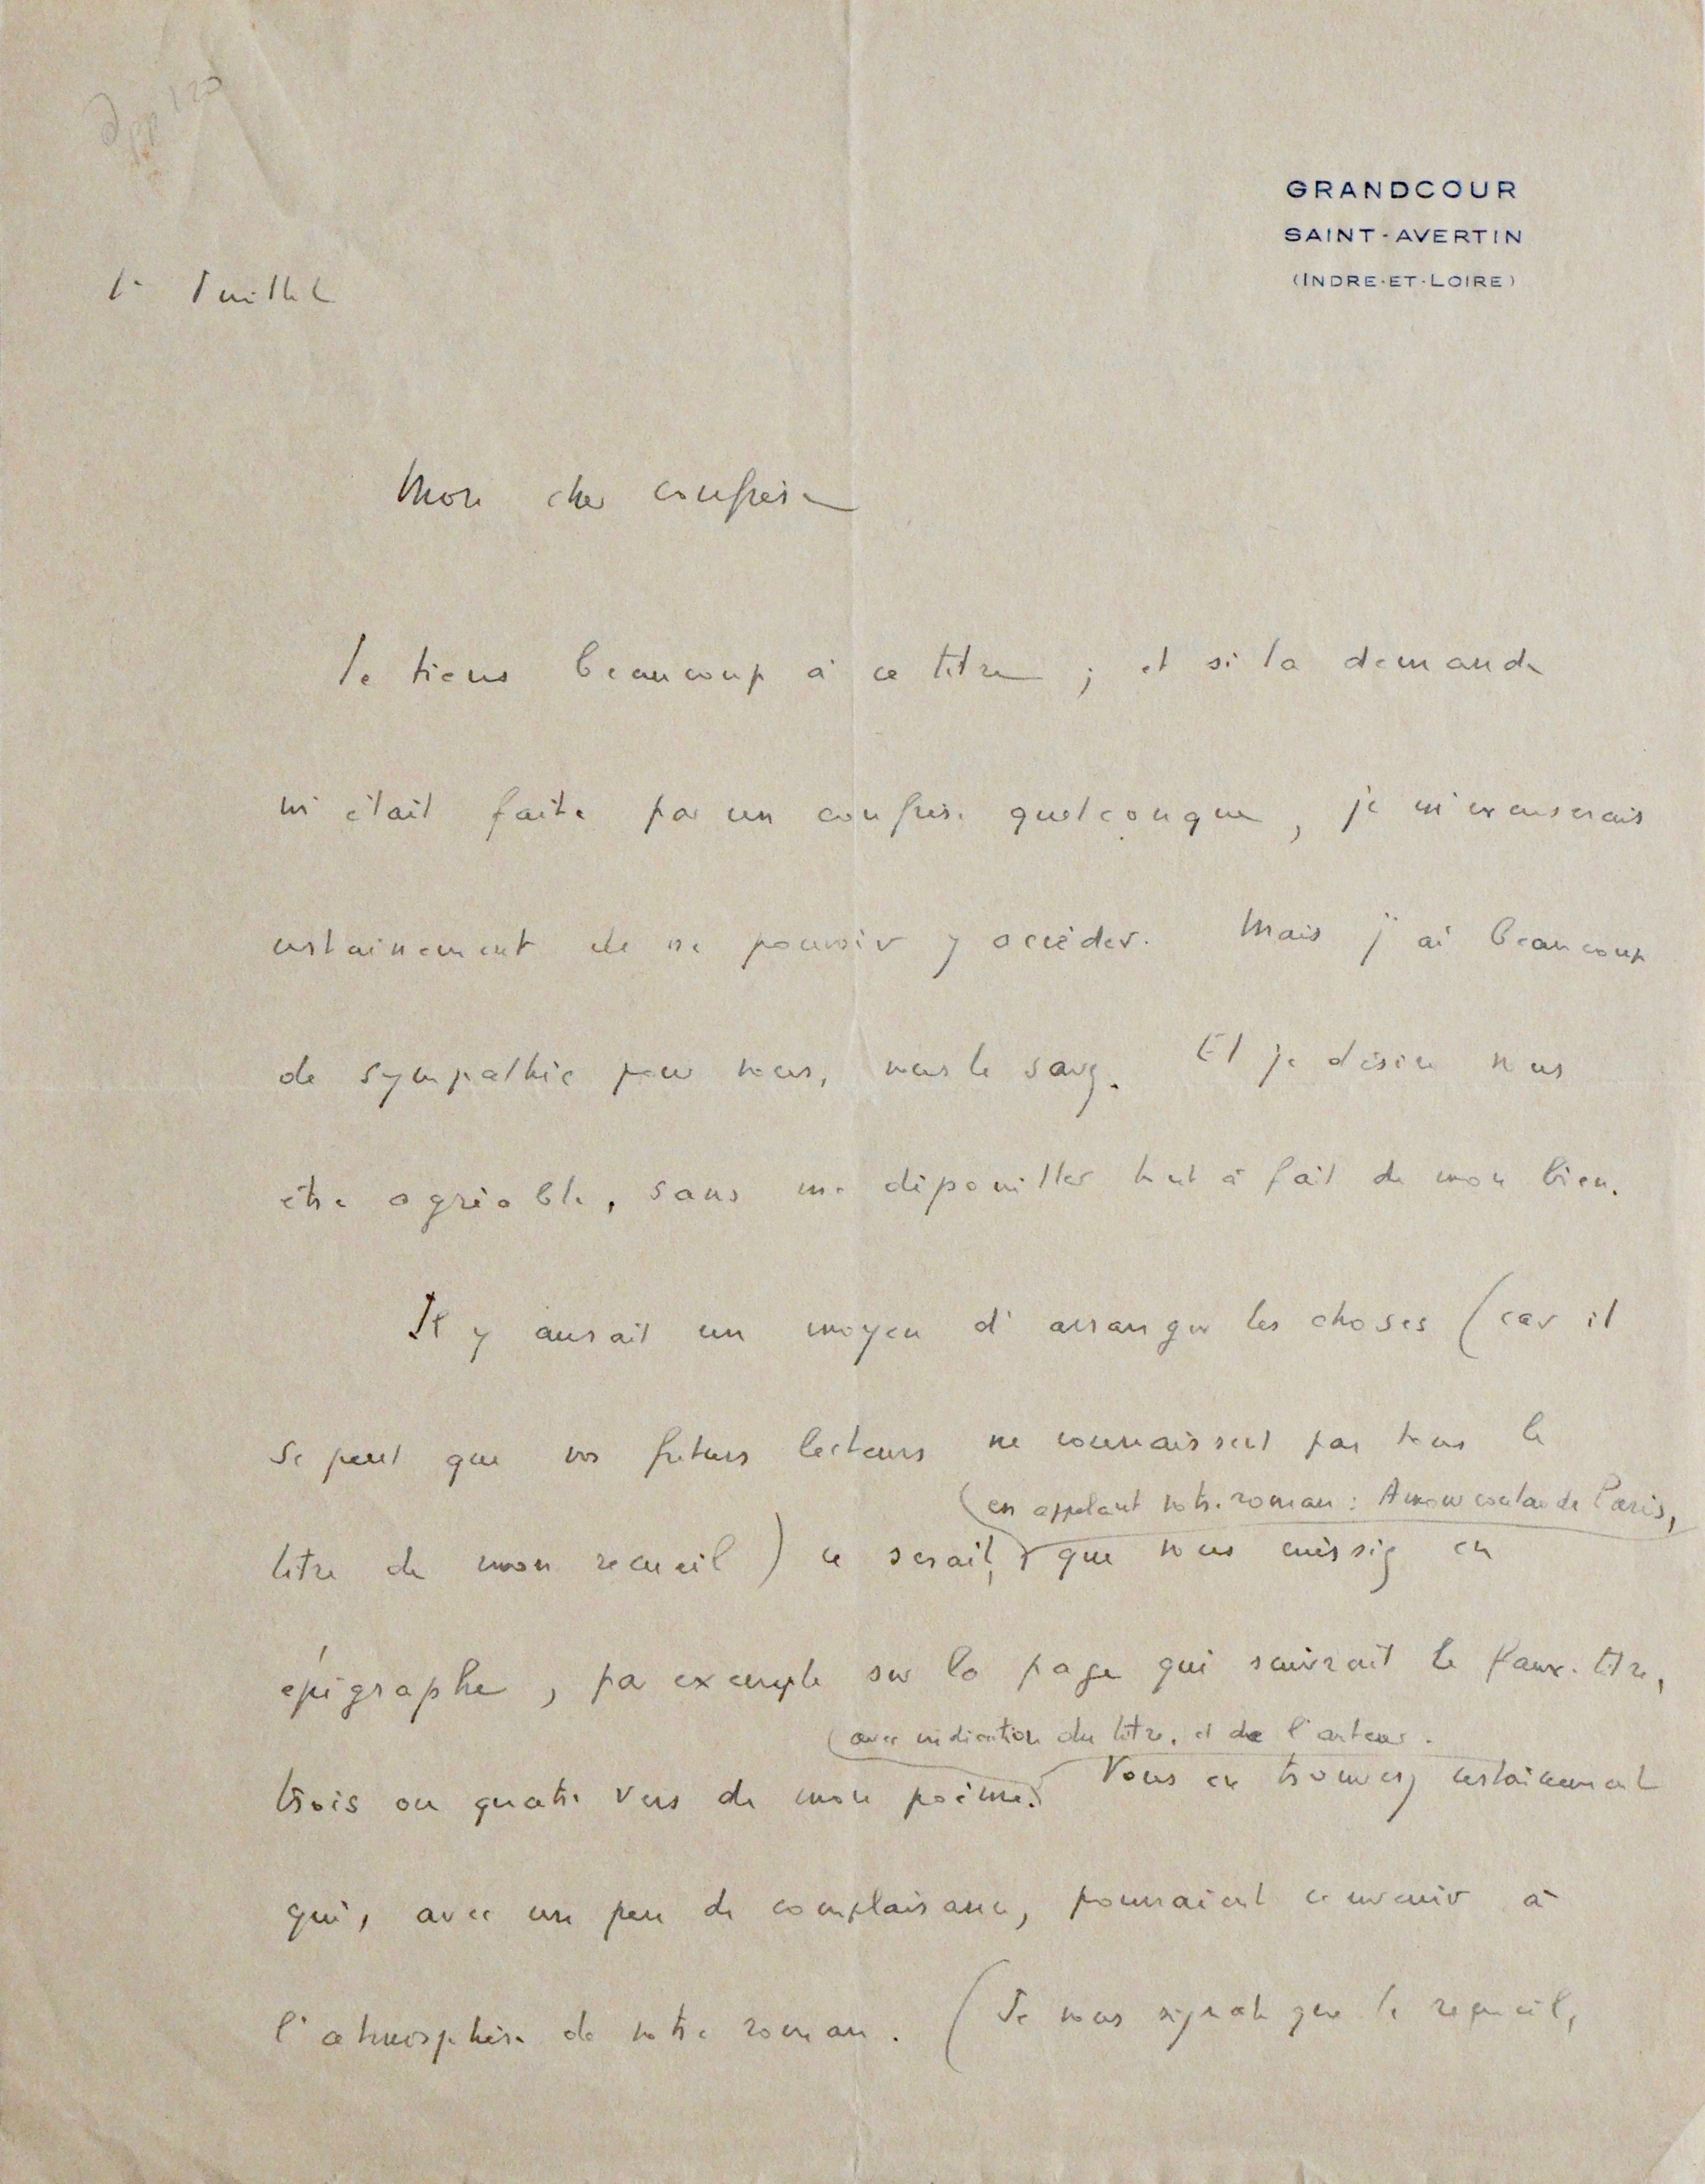 GRANDCOUR
SAINT-AVERTIN
(INDRE-ET-LOIRE)
1er Juillet
Mon cher confrère
Je tiens beaucoup à ce titre ; et si la demande
m'était faite par un confrère quelconque, je m'excuserais
certainement de ne pouvoir y accéder. Mais j'ai beaucoup
de sympathie pour vous, vous le savez. Et je désire vous
être agréable, sans me dépouiller tout à fait de mon bien.
Il y aurait un moyen d'arranger les choses (car il
se peut que vos futurs lecteurs ne connaissent pas tous le
(en appelant votre roman : Amour couleur de Paris,
titre de mon recueil) ce serait, que vous missiez en
épigraphe, par exemple sur la page qui suivrait le faux-titre,
(avec indication du titre, et de l'auteur.
trois ou quatre vers de mon poème. Vous en trouverez certainement
qui, avec un peu de complaisance, pourraient convenir à
l'atmosphère de votre roman. (Je vous signale que le recueil,